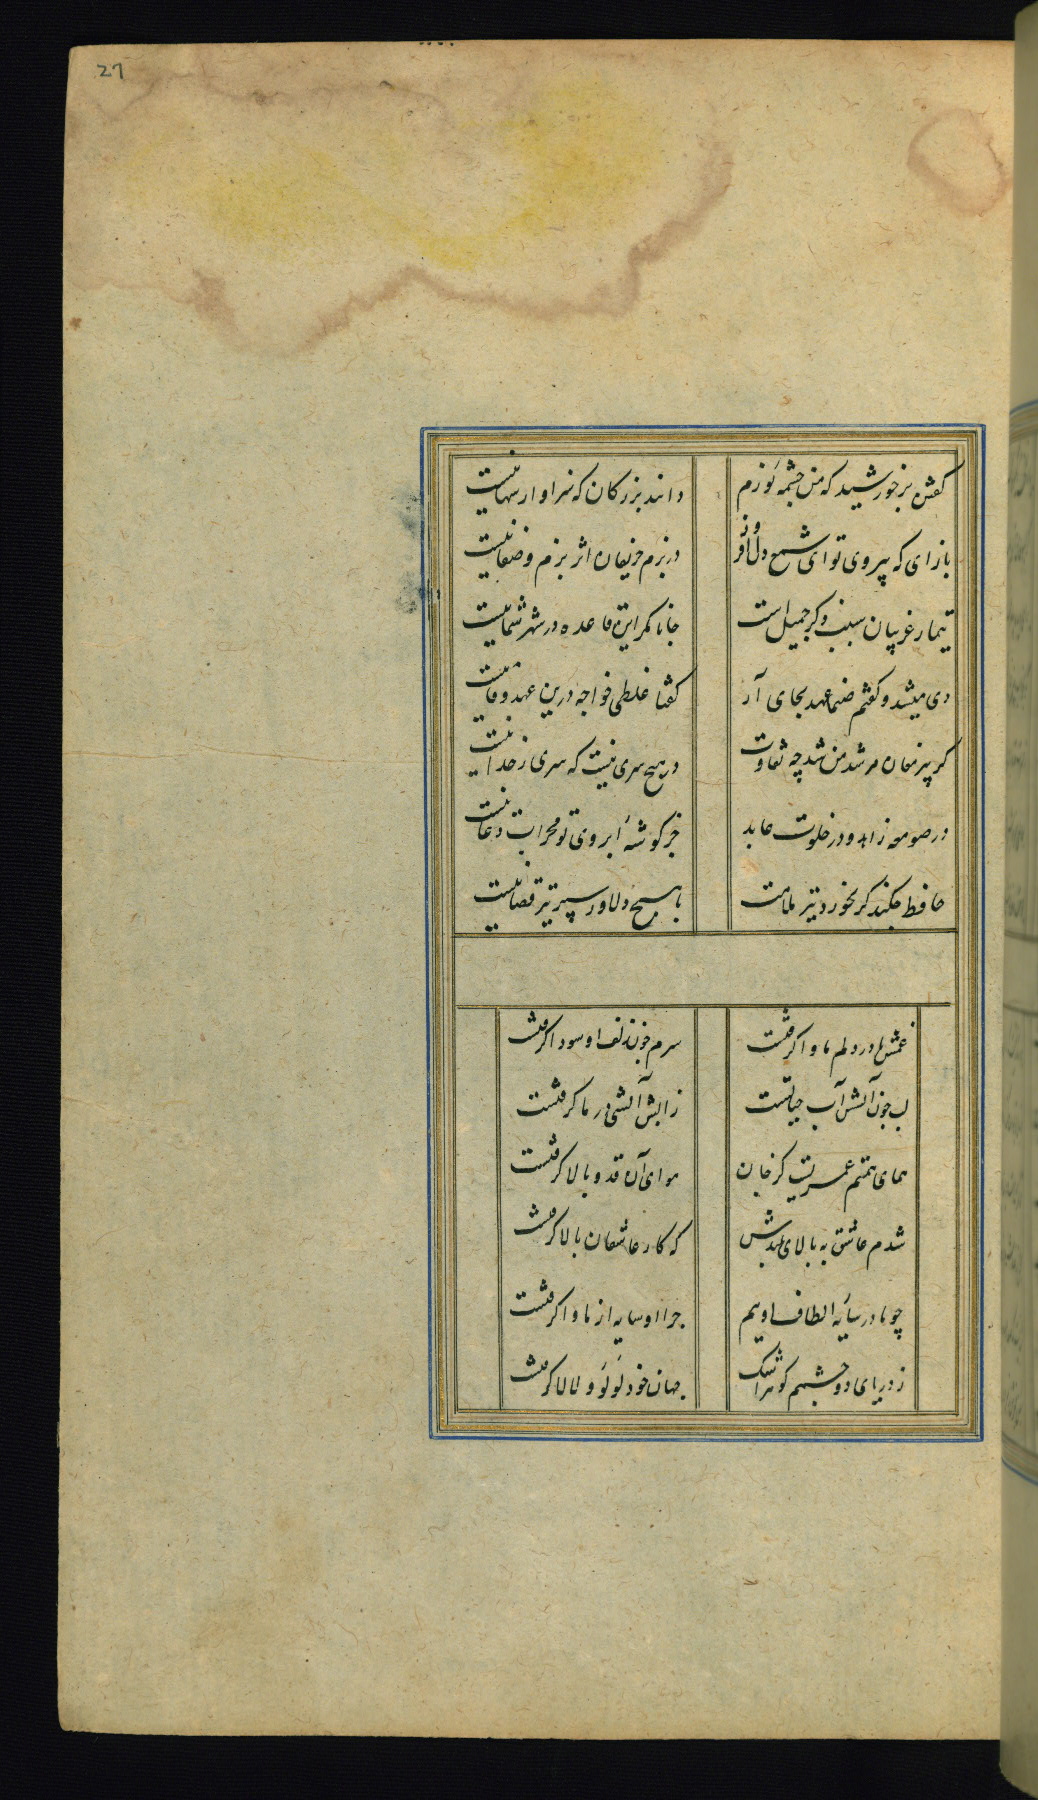 27
گفتن بر خورشید که من چشمه نورم
دانند بزرگان که سزاوار سها نیست
باز آی که بی روی تو ای شمع دل افروز
در بزم حریفان اثر بزم و صفا نیست
تیمار غریبان سبب ذکر جمیل است
جانا مگر این قاعده در شهر شما نیست
دی میشد و گفتم صنما عهد بجای آر
گفتا غلطی خواجه درین عهد وفا نیست
گر پیر مغان مرشد من شد چه تفاوت
در هیچ سری نیست که سری ز خدا نیست
در صومعه زاهد و در خلوت عابد
جز گوشه ابروی تو محراب دعا نیست
حافظ چکند گر نخورد تیر ملامت
با هیچ دلاور سپر تیر قضا نیست
غمش تا در دلم ماوا گرفتست
سرم چون زلف او سودا گرفتست
لب چون آتشش آب حیاتست
ز آبش آتشی در ما گرفتست
همای همتم عمریست کز جان
هوای آن قد و بالا گرفتست
شدم عاشق به بالای بلندش
که کار عاشقان بالا گرفتست
چو ما در سایه الطاف اویم
چرا او سایه از ما وا گرفتست
ز دریای دو چشمم گوهر اشک
جهان خود لؤلؤ لالا گرفتست